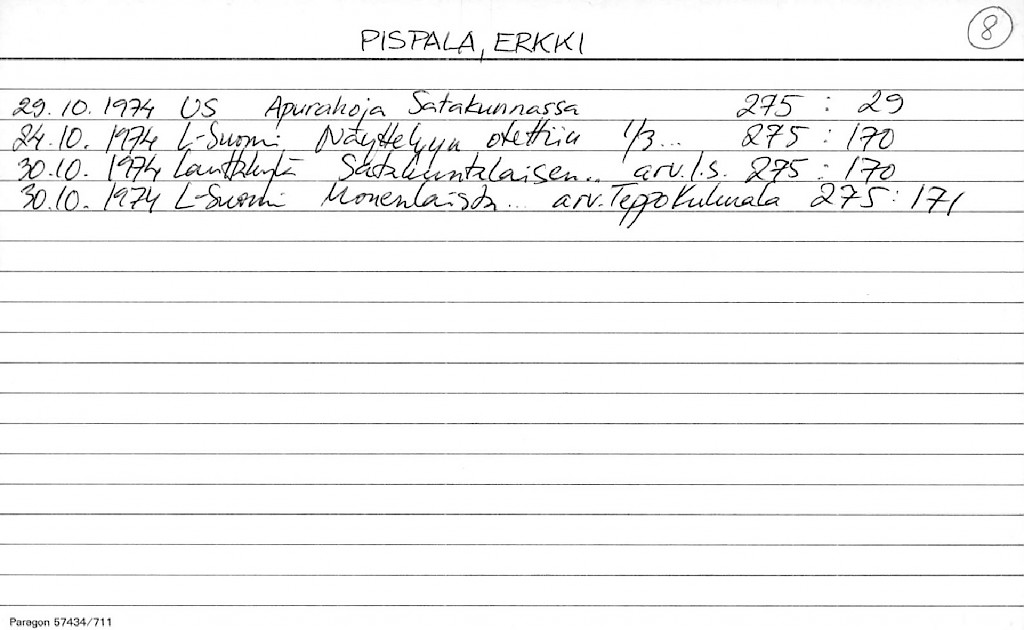 PISPALA, ERKKI
8
29.10.1974 US Apurahoja Satakunnassa 275 : 29
24.10. 1974 L-Suomi Näyttelyyn otettiin 1/3... 275 : 170
30.10. 1974 Lauttakylä Satakuntalaisen.. arv. I.S. 275 : 170
30.10. 1974 L-Suomi Monenlaista... arv. Teppo Kulmala 275 : 171
Paragon 57434/711